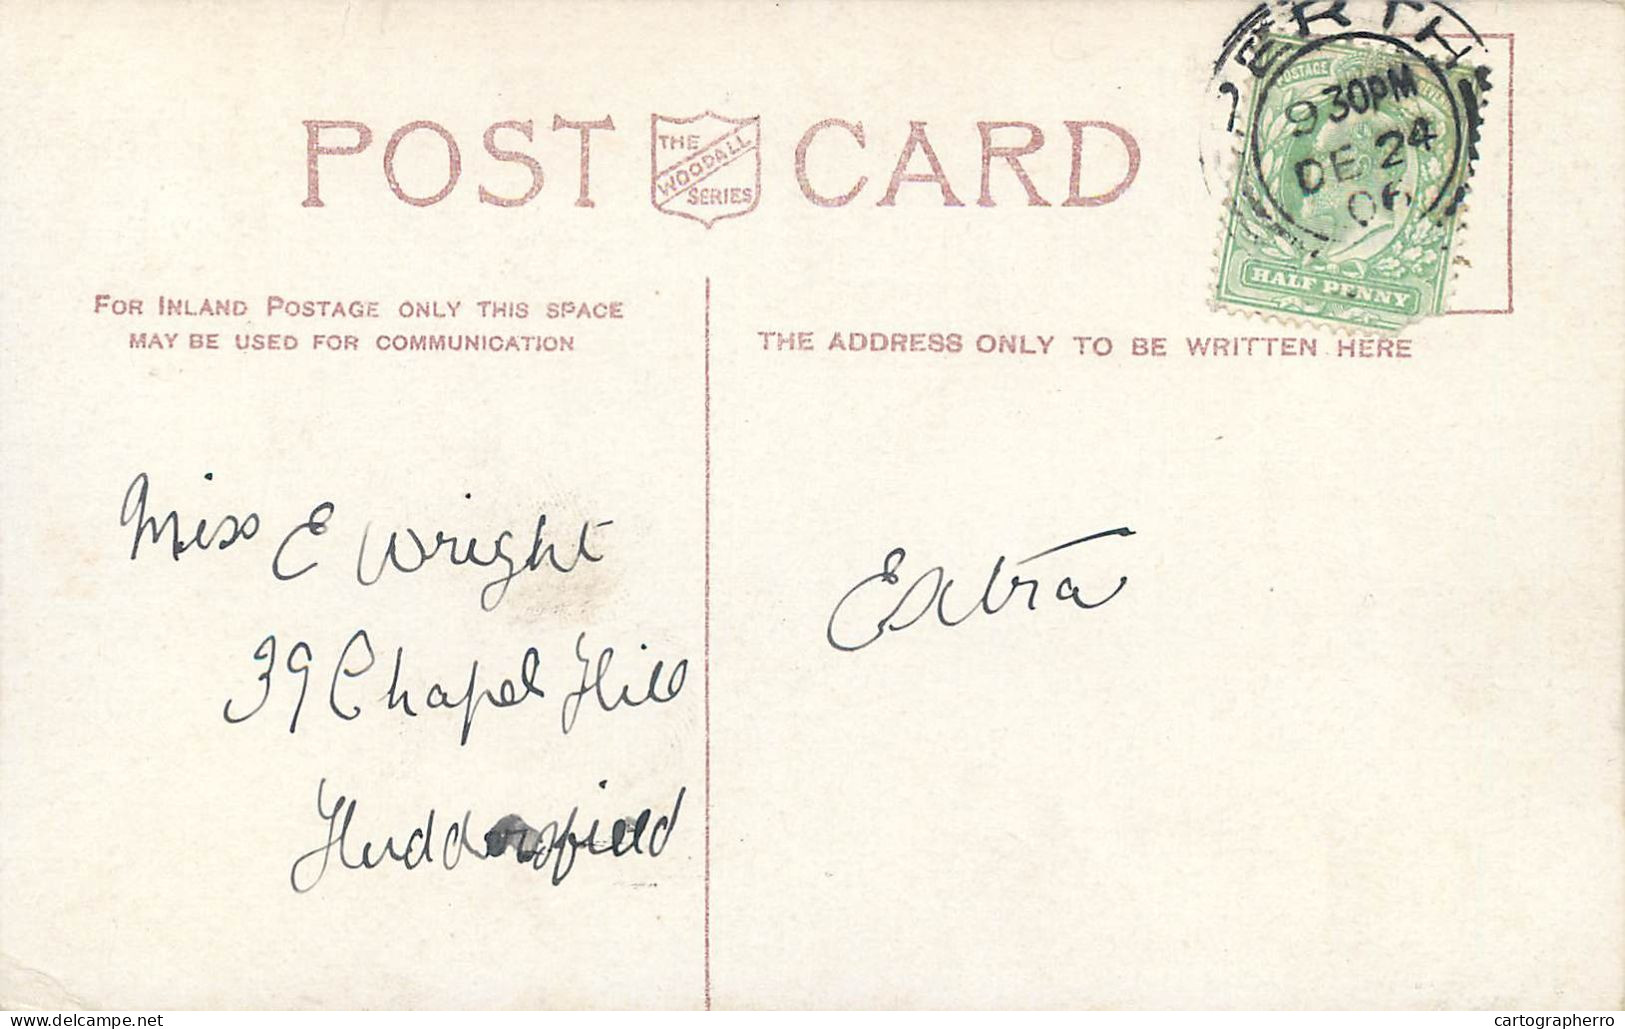 POST CARD
THE
WOODALL
SERIES
PERTH
9 30PM
DE 24
06
POSTAGE
HALF PENNY
FOR INLAND POSTAGE ONLY THIS SPACE
MAY BE USED FOR COMMUNICATION
THE ADDRESS ONLY TO BE WRITTEN HERE
Miss E Wright
39 Chapel Hill
Huddersfield
Extra
delcampe.net
cartographerro